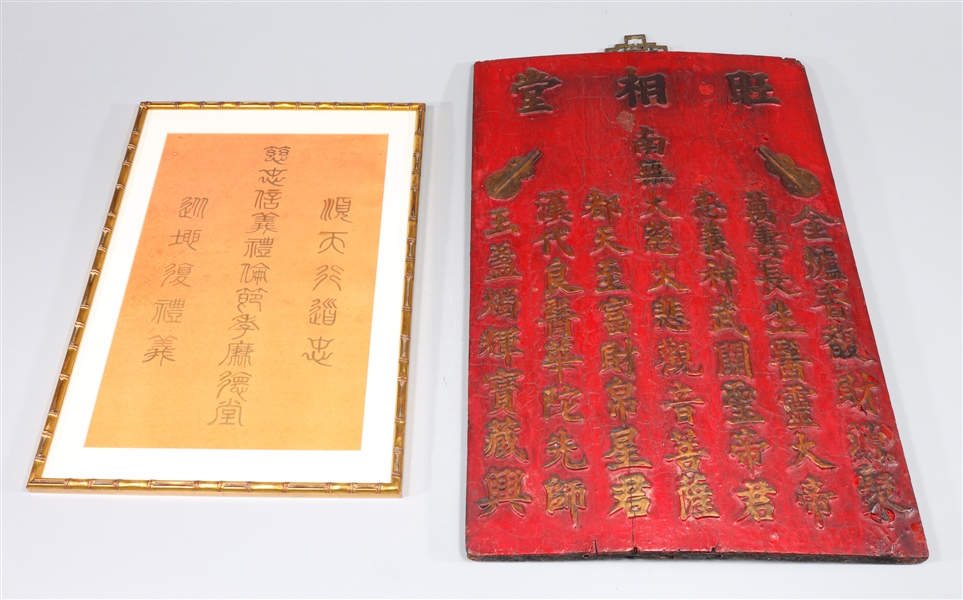 順天行道忠
慈忠信義禮倫節孝廉德堂
巡地復禮義
旺相堂
金爐香馥財源聚
萬壽長生醫靈大帝
忠義神武關聖帝君
南無大慈大悲觀音菩薩
都天至富財帛星君
漢代良醫華陀先師
玉盞燭輝寶藏興